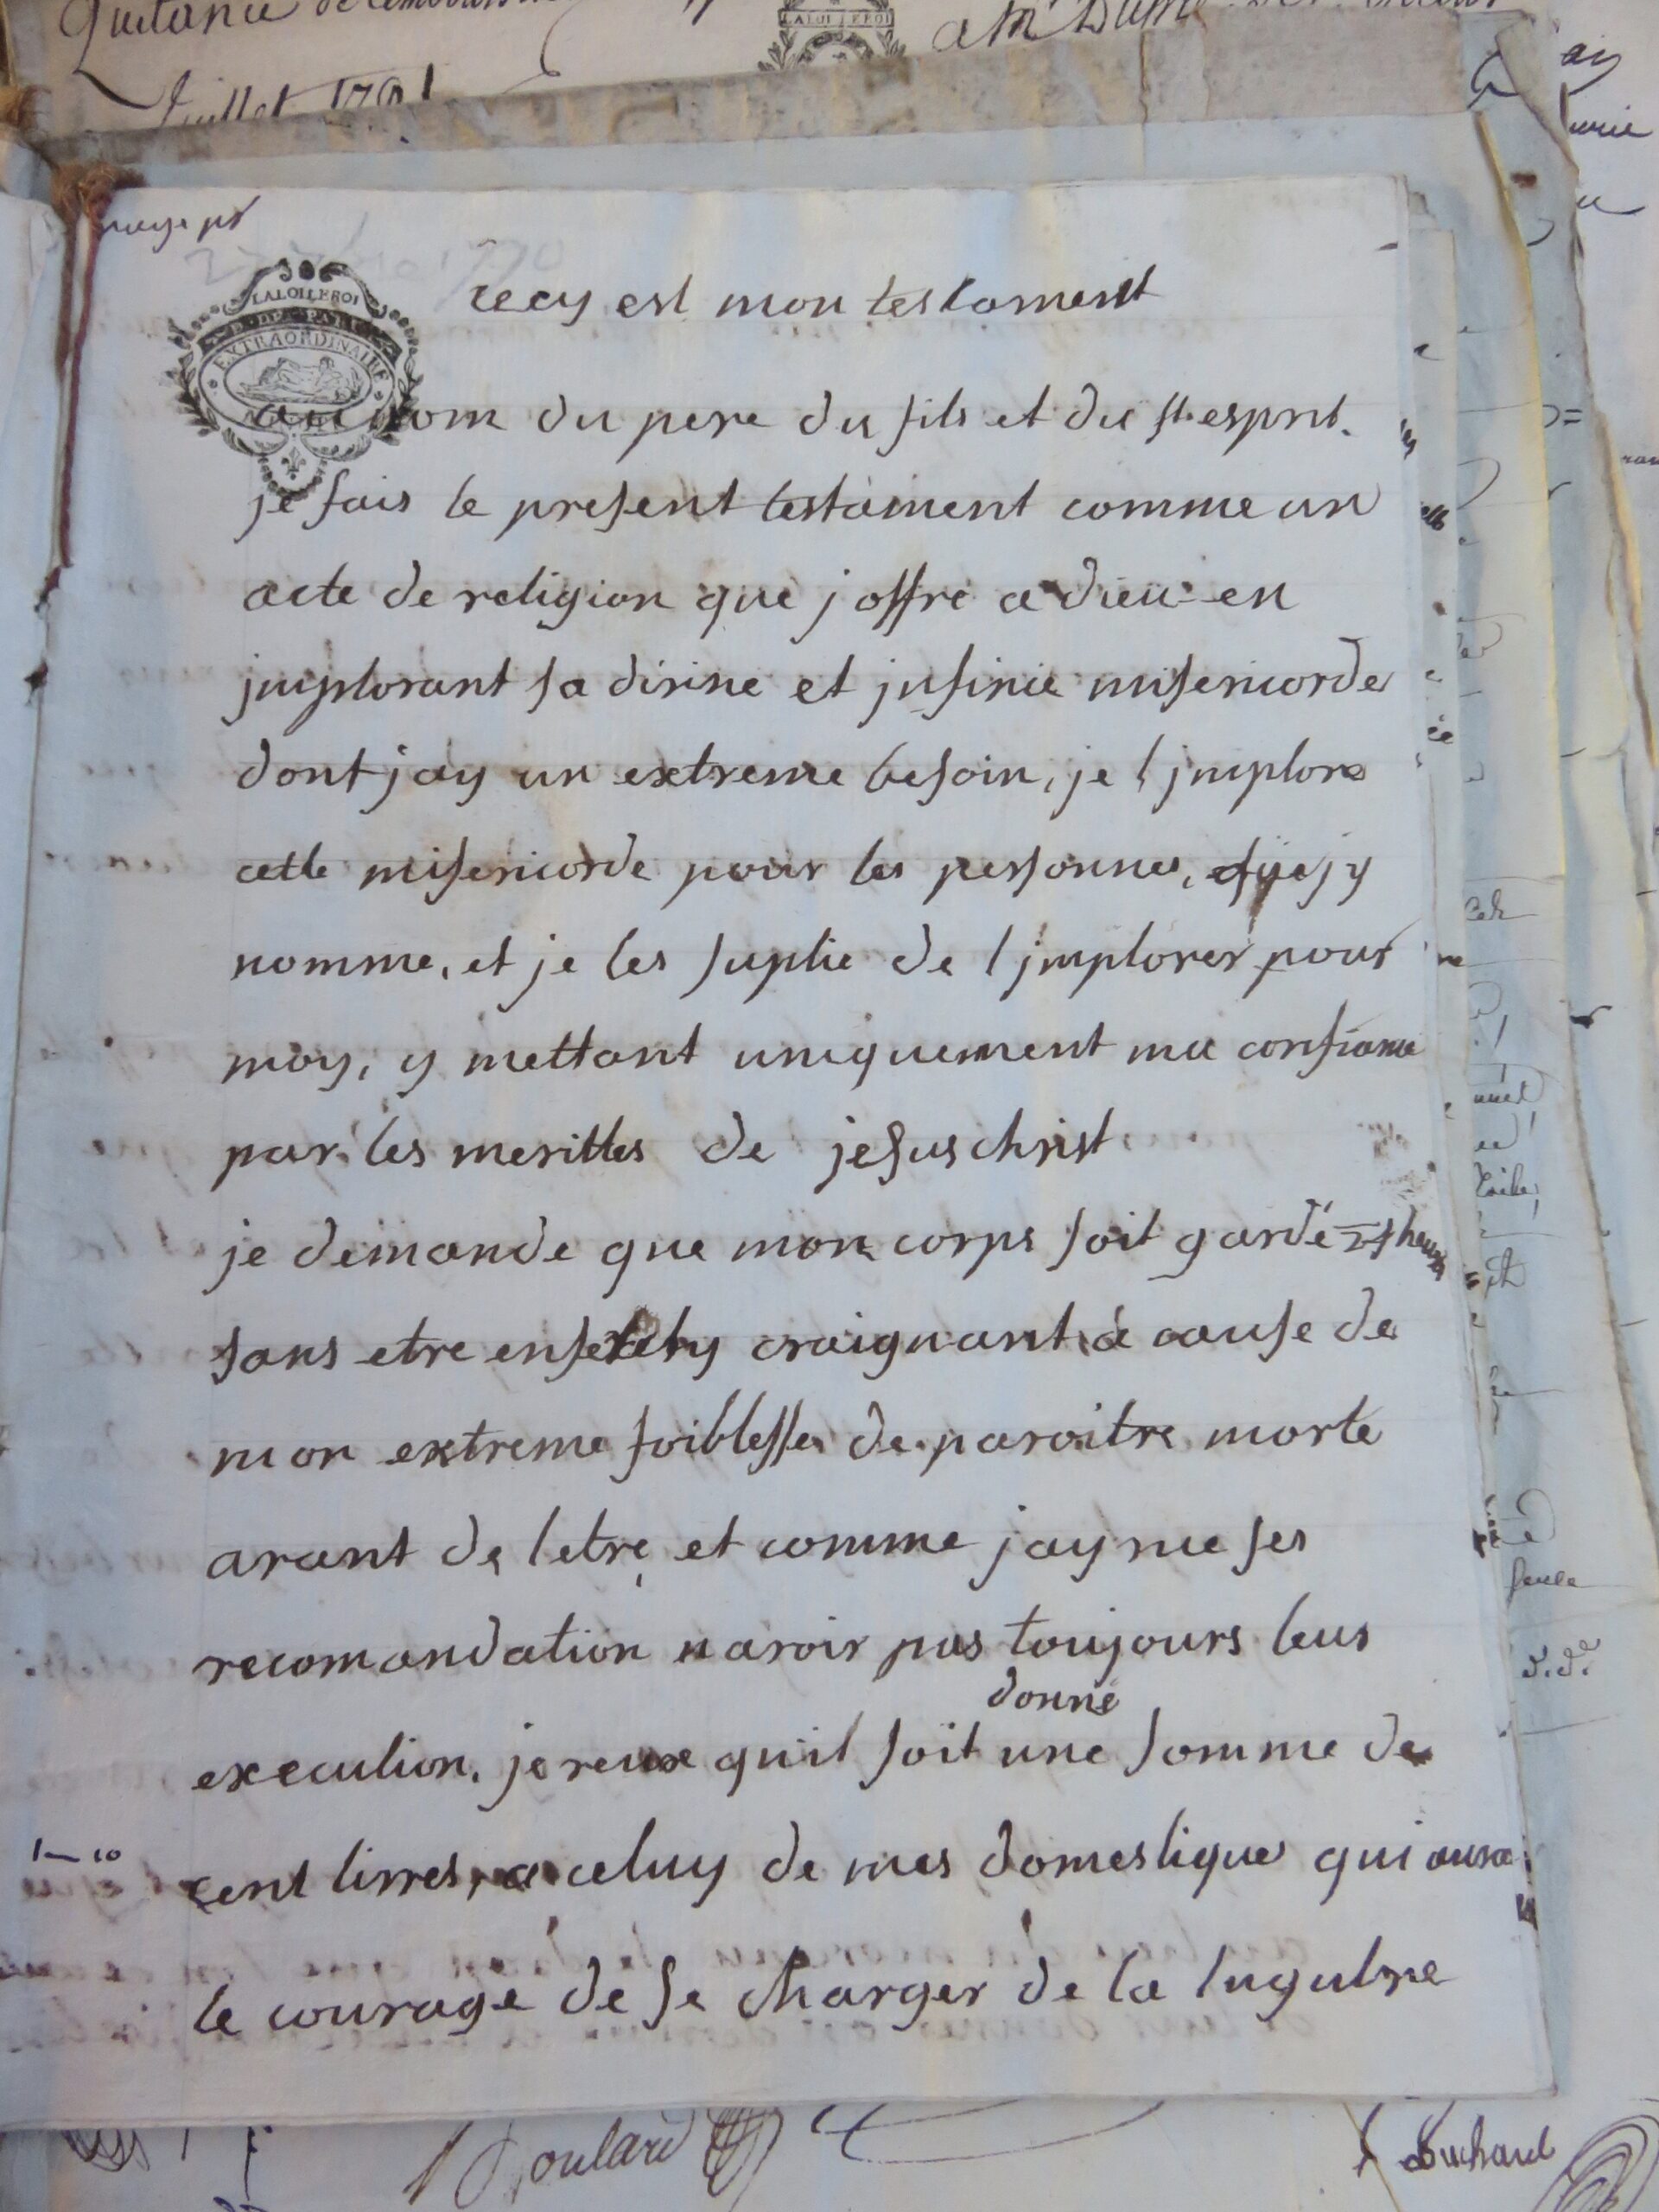 Quitance de
a Mr
Juillet 1791
LA LOI LE ROI
page pre
LA LOI LE ROI
EXTRAORDINAIRE
cecy est mon testament
au nom du pere du fils et du st esprit.
je fais le present testament comme un
acte de religion que j offre a dieu en
jmplorant sa divine et jnfinie misericorde
dont jay un extreme besoin, je l jmplore
cette misericorde pour les personnes, que jy
nomme, et je les suplie de l jmplorer pour
moy, y mettant uniquement ma confiance
par les merittes de jesus christ.
je demande que mon corps soit gardé heures
sans etre ensevely craignant a cause de
mon extreme foiblesse de paroitre morte
avant de letre, et comme jay vue ses
recomandation navoir pas toujours leus
donné
execution. je veux quil soit une somme de
cent livres, a celuy de mes domestiques qui aura
le courage de se charger de la lugubre
seule
Boulard
Bouchard